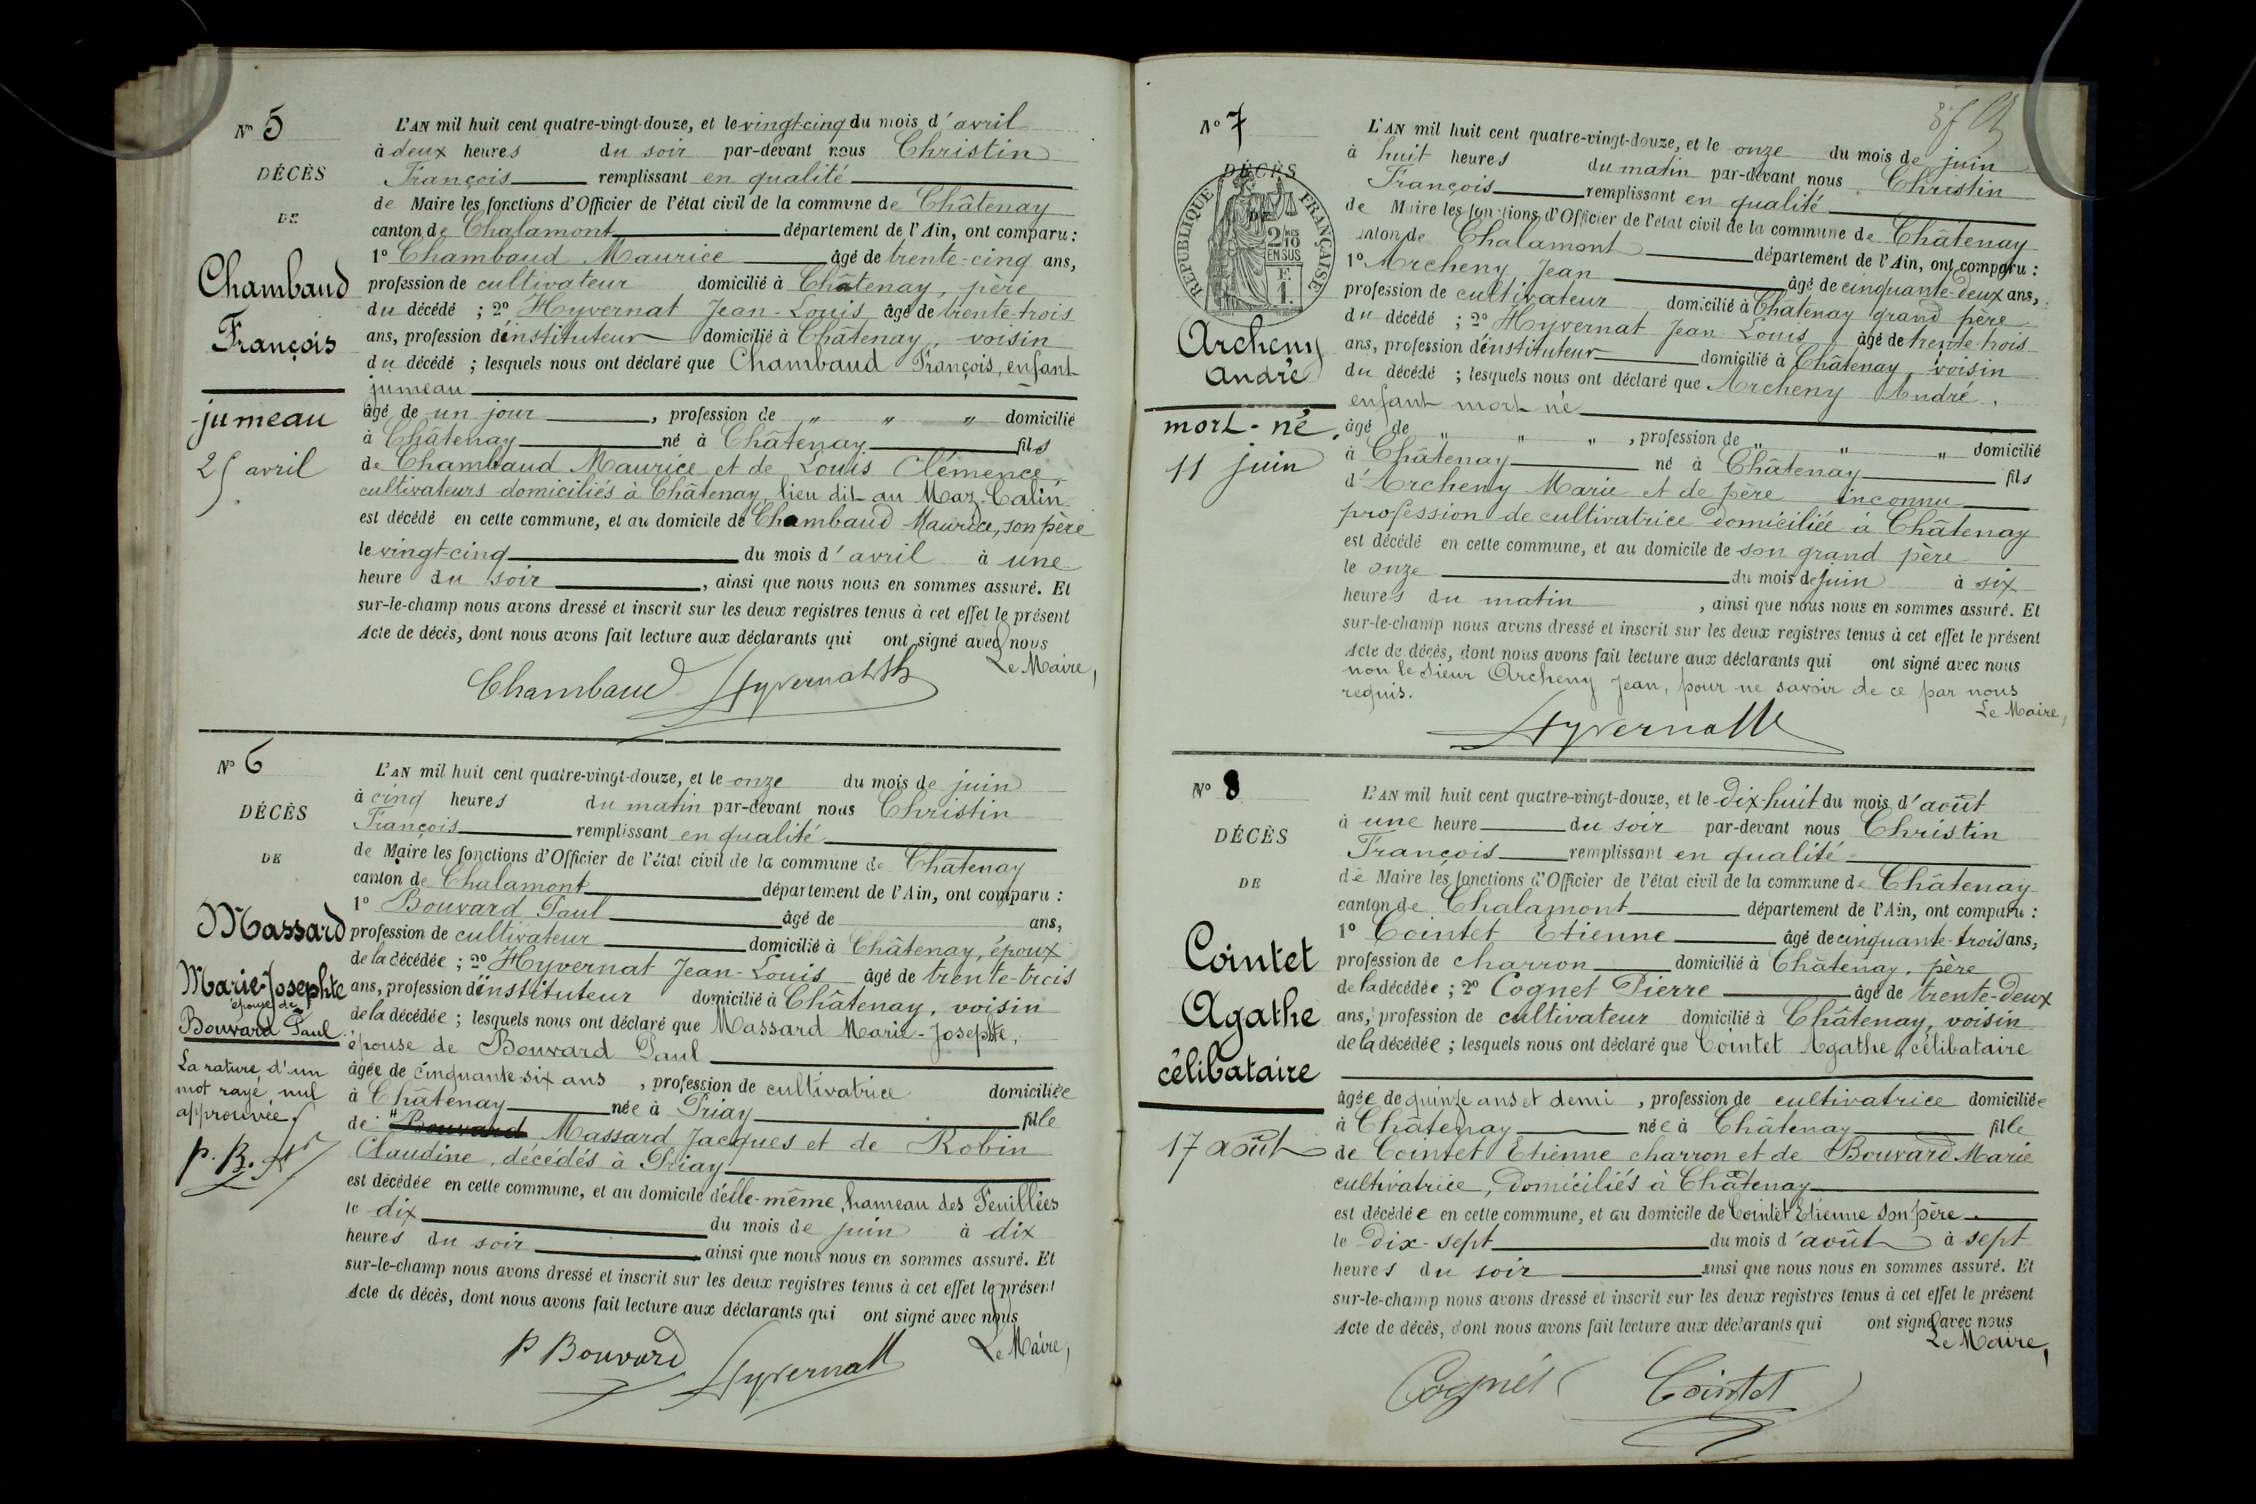 N° 5
DÉCÈS
DE
Chambaud
François
jumeau
25 avril
L'AN mil huit cent quatre-vingt-douze, et le vingt-cinq du mois d'avril
à deux heures du soir par-devant nous Christin
François remplissant en qualité
de Maire les fonctions d'Officier de l'état civil de la commune de Châtenay
canton de Chalamont département de l'Ain, ont comparu :
1° Chambaud Maurice âgé de trente-cinq ans,
profession de cultivateur domicilié à Châtenay, père
du décédé ; 2° Hyvernat Jean-Louis âgé de trente-trois
ans, profession d'instituteur domicilié à Châtenay, voisin
du décédé ; lesquels nous ont déclaré que Chambaud François, enfant
jumeau
âgé de un jour , profession de " " " domicilié
à Châtenay né à Châtenay fils
de Chambaud Maurice et de Louis Clémence
cultivateurs domiciliés à Châtenay, lieu dit au Maz-Calin
est décédé en cette commune, et au domicile de Chambaud Maurice, son père
le vingt-cinq du mois d'avril à une
heure du soir , ainsi que nous nous en sommes assuré. Et
sur-le-champ nous avons dressé et inscrit sur les deux registres tenus à cet effet le présent
Acte de décès, dont nous avons fait lecture aux déclarants qui ont signé avec nous
Le Maire,
Chambaud Hyvernat
N° 6
DÉCÈS
DE
Massard
Marie-Josephte
épouse de
Bouvard Paul
La rature d'un
mot rayé nul
approuvée.
P. B.
L'AN mil huit cent quatre-vingt-douze, et le onze du mois de juin
à cinq heures du matin par-devant nous Christin
François remplissant en qualité
de Maire les fonctions d'Officier de l'état civil de la commune de Châtenay
canton de Chalamont département de l'Ain, ont comparu :
1° Bouvard Paul âgé de ans,
profession de cultivateur domicilié à Châtenay, époux
de la décédée ; 2° Hyvernat Jean-Louis âgé de trente-trois
ans, profession d'instituteur domicilié à Châtenay, voisin
de la décédée ; lesquels nous ont déclaré que Massard Marie-Josephte,
épouse de Bouvard Paul
âgée de cinquante-six ans , profession de cultivatrice domiciliée
à Châtenay née à Priay fille
de Bouvard Massard Jacques et de Robin
Claudine, décédés à Priay
est décédée en cette commune, et au domicile d'elle-même, hameau des Feuillées
le dix du mois de juin à dix
heures du soir ainsi que nous nous en sommes assuré. Et
sur-le-champ nous avons dressé et inscrit sur les deux registres tenus à cet effet le présent
Acte de décès, dont nous avons fait lecture aux déclarants qui ont signé avec nous
Le Maire,
P Bouvard Hyvernat
87
N° 7
DÉCÈS
DE
RÉPUBLIQUE FRANÇAISE
2/10
EN SUS
F.
1.
Archeny
André
mort-né
11 juin
L'AN mil huit cent quatre-vingt-douze, et le onze du mois de juin
à huit heures du matin par-devant nous Christin
François remplissant en qualité
de Maire les fonctions d'Officier de l'état civil de la commune de Châtenay
canton de Chalamont département de l'Ain, ont comparu :
1° Archeny Jean âgé de cinquante-deux ans,
profession de cultivateur domicilié à Châtenay grand père
du décédé ; 2° Hyvernat Jean-Louis âgé de trente-trois
ans, profession d'instituteur domicilié à Châtenay, voisin
du décédé ; lesquels nous ont déclaré que Archeny André,
enfant mort né
âgé de " " " , profession de " " " domicilié
à Châtenay né à Châtenay fils
d'Archeny Marie et de père inconnu
profession de cultivatrice domiciliée à Châtenay
est décédé en cette commune, et au domicile de son grand père
le onze du mois de juin à six
heures du matin , ainsi que nous nous en sommes assuré. Et
sur-le-champ nous avons dressé et inscrit sur les deux registres tenus à cet effet le présent
Acte de décès, dont nous avons fait lecture aux déclarants qui ont signé avec nous
non le sieur Archeny Jean, pour ne savoir de ce par nous
requis.
Le Maire,
Hyvernat
N° 8
DÉCÈS
DE
Cointet
Agathe
célibataire
17 août
L'AN mil huit cent quatre-vingt-douze, et le dix huit du mois d'août
à une heure du soir par-devant nous Christin
François remplissant en qualité
de Maire les fonctions d'Officier de l'état civil de la commune de Châtenay
canton de Chalamont département de l'Ain, ont comparu :
1° Cointet Etienne âgé de cinquante-trois ans,
profession de charron domicilié à Châtenay, père
de la décédée ; 2° Cognet Pierre âgé de trente-deux
ans, profession de cultivateur domicilié à Châtenay, voisin
de la décédée ; lesquels nous ont déclaré que Cointet Agathe, célibataire
âgée de quinze ans et demi , profession de cultivatrice domiciliée
à Châtenay née à Châtenay fille
de Cointet Etienne charron et de Bouvard Marie
cultivatrice, domiciliés à Châtenay
est décédée en cette commune, et au domicile de Cointet Etienne son père
le dix-sept du mois d'août à sept
heures du soir ainsi que nous nous en sommes assuré. Et
sur-le-champ nous avons dressé et inscrit sur les deux registres tenus à cet effet le présent
Acte de décès, dont nous avons fait lecture aux déclarants qui ont signé avec nous
Le Maire,
Cognet Cointet